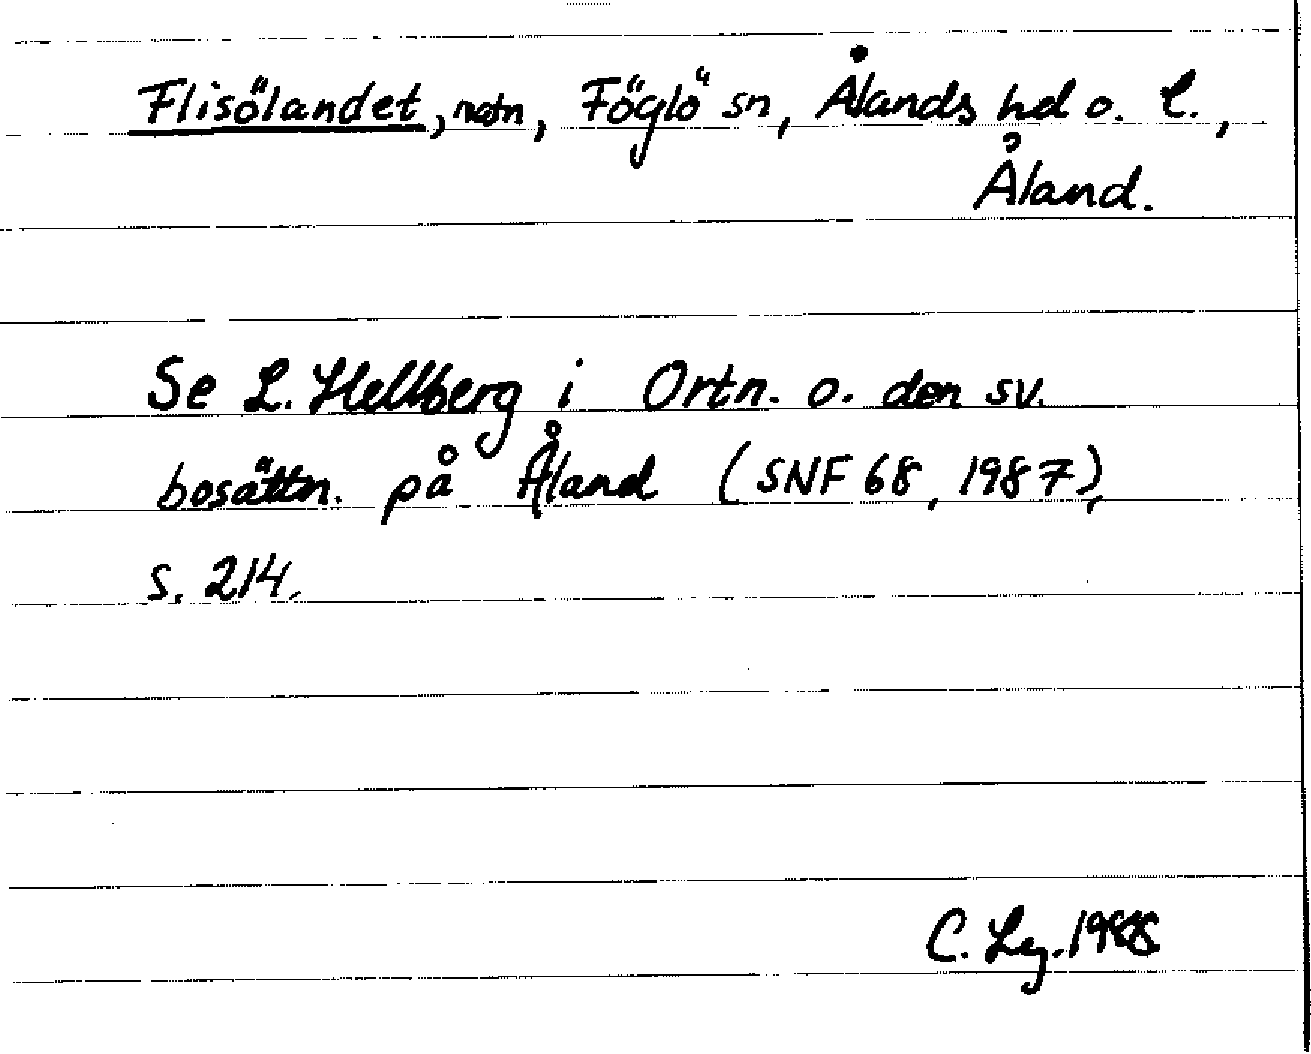 Flisölandet, natn, Föglö sn, Ålands hd o. l.,
Åland.
Se L. Hellberg i Ortn. o. den sv.
bosättn. på Åland (SNF 68, 1987),
s. 214.
C. Lg. 1988